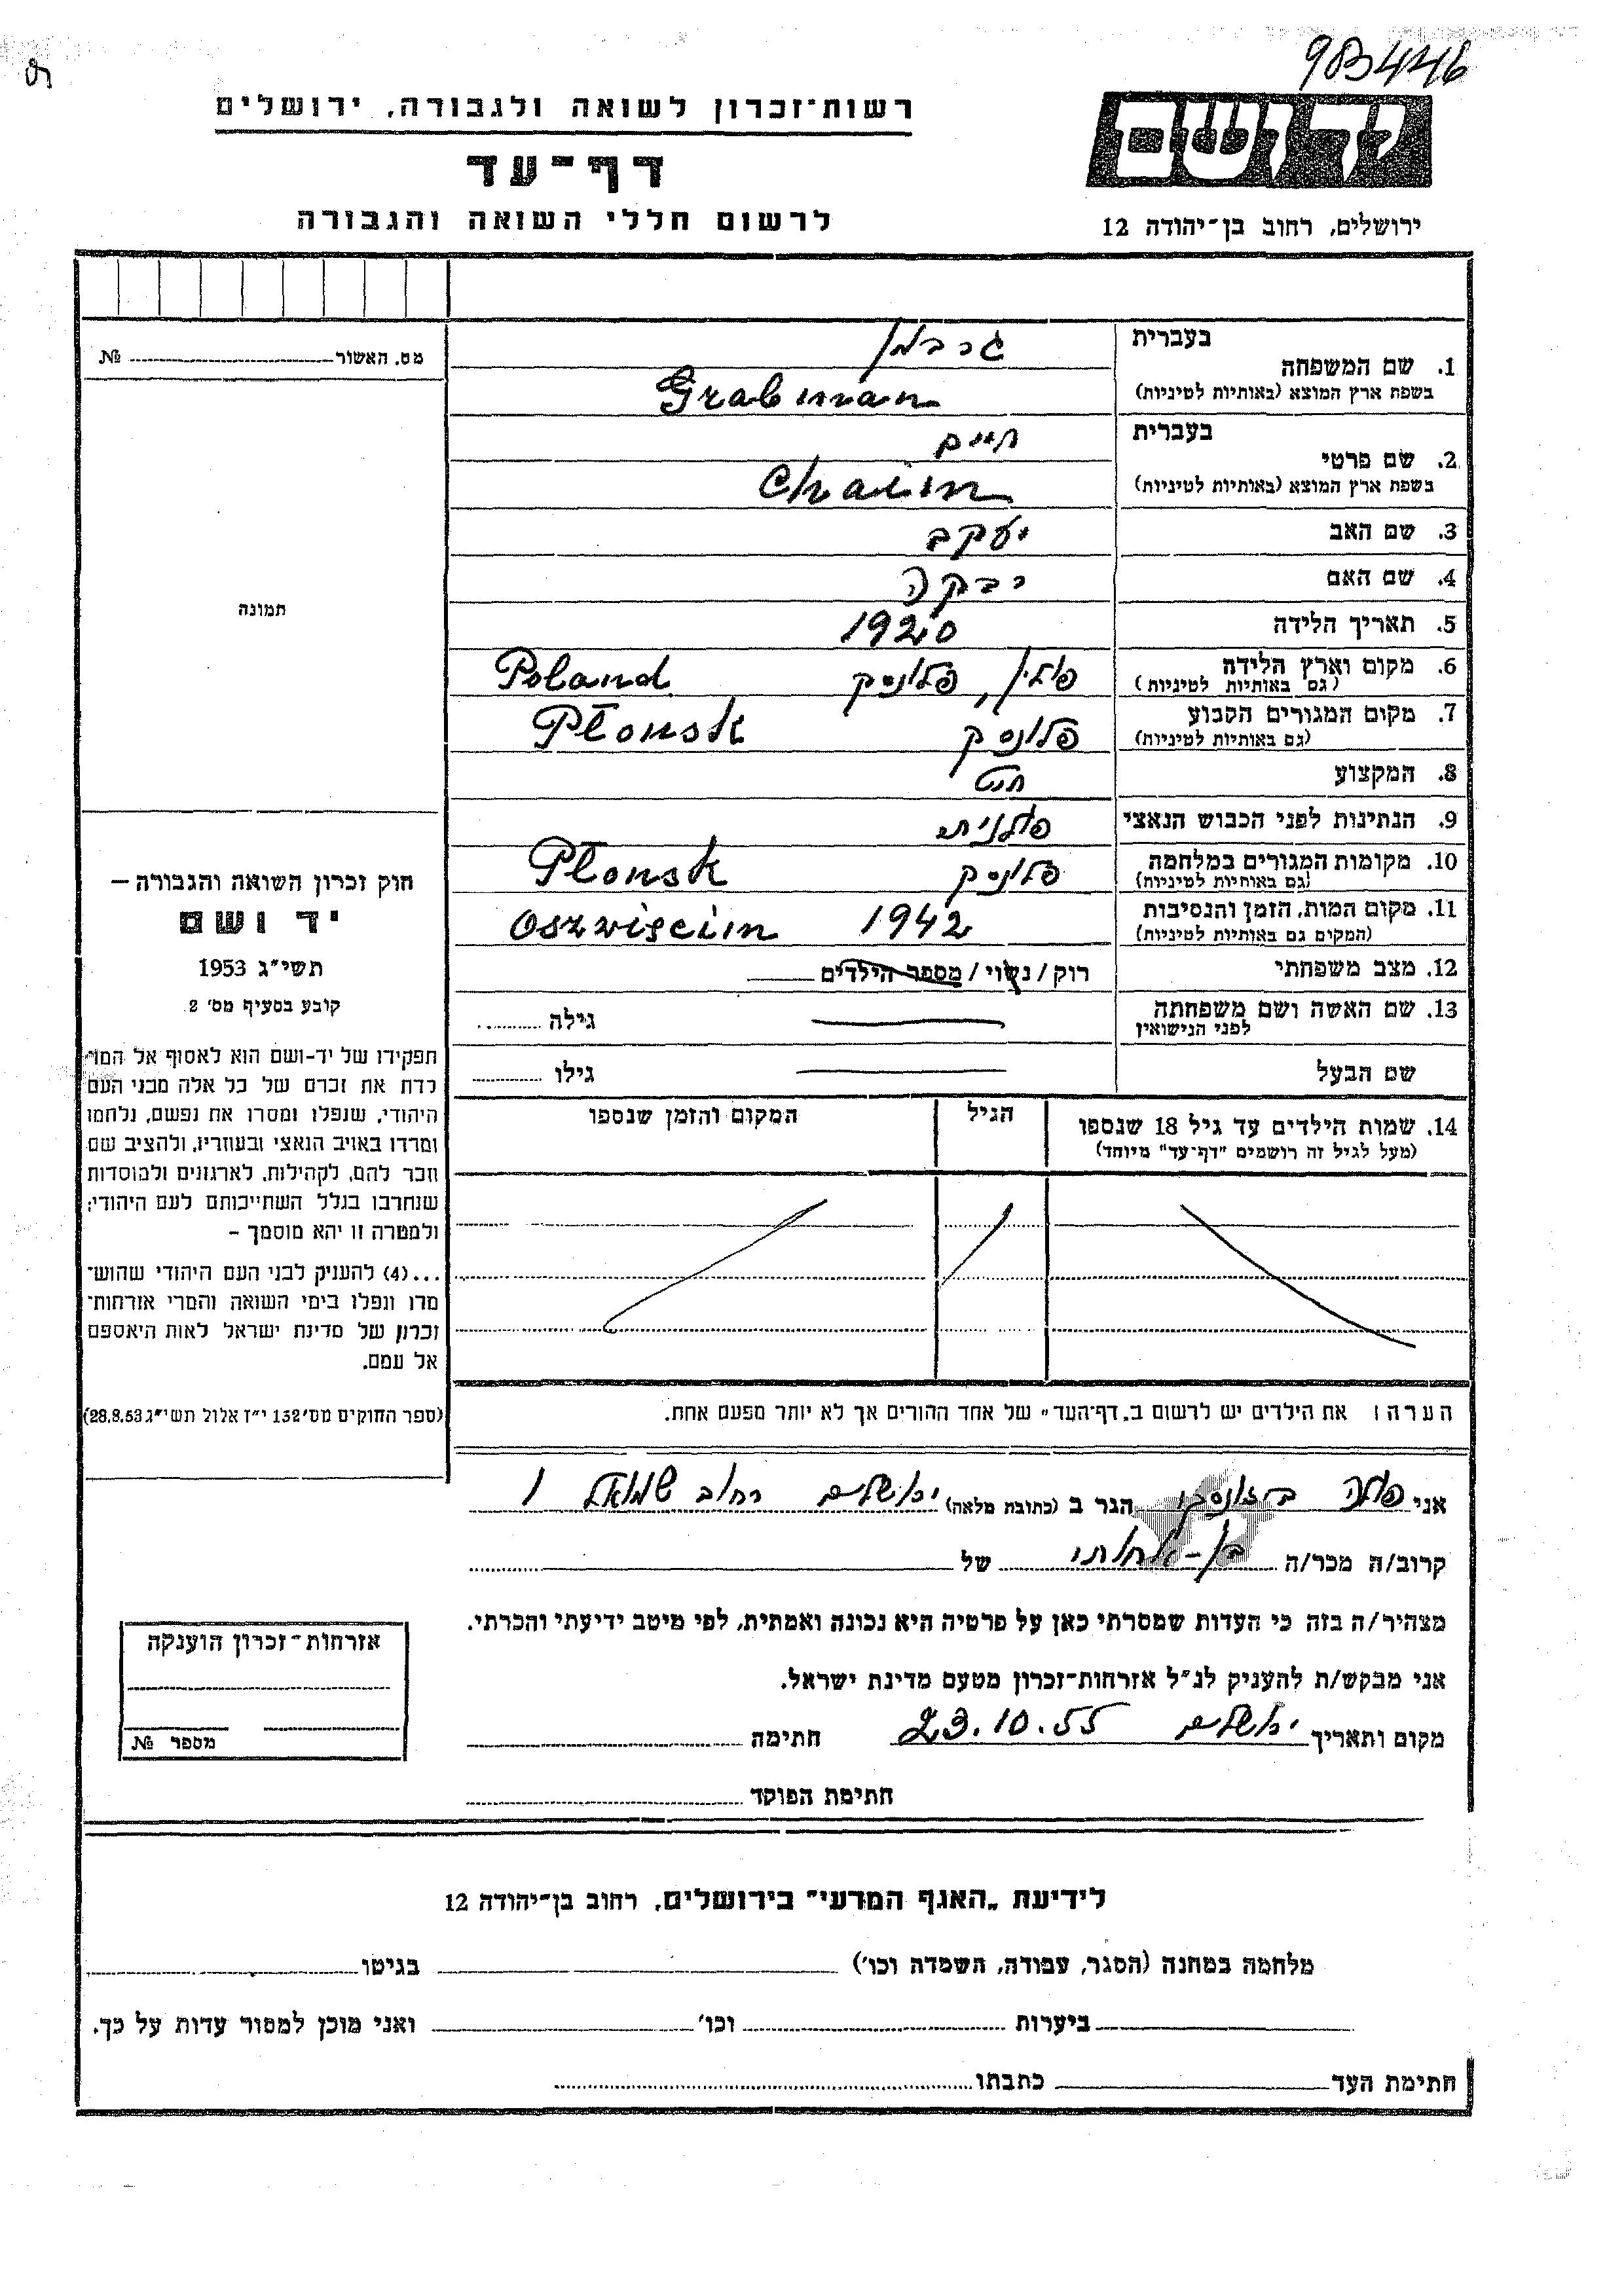 983446
רשות־זכרון לשואה ולגבורה, ירושלים
יד ושם
דף־עד
לרשום חללי השואה והגבורה
ירושלים, רחוב בן־יהודה 12
מס. האשור № 
בעברית
1. שם המשפחה
גרבמן
בשפת ארץ המוצא (באותיות לטיניות)
Grabman
בעברית
2. שם פרטי
חיים
בשפת ארץ המוצא (באותיות לטיניות)
Chaim
3. שם האב יעקב
4. שם האם רבקה
5. תאריך הלידה 1920
6. מקום וארץ הלידה פולין, פלונסק Poland
(גם באותיות לטיניות)
7. מקום המגורים הקבוע פלונסק Płonsk
(גם באותיות לטיניות)
8. המקצוע חיט
9. הנתינות לפני הכבוש הנאצי פולנית
10. מקומות המגורים במלחמה פלונסק Płonsk
(גם באותיות לטיניות)
11. מקום המות, הזמן והנסיבות 1942 Oszwięcim
(המקום גם באותיות לטיניות)
12. מצב משפחתי רוק/נשוי/מספר הילדים
13. שם האשה ושם משפחתה גילה
לפני הנישואין
שם הבעל גילו
14. שמות הילדים עד גיל 18 שנספו הגיל המקום והזמן שנספו
(מעל לגיל זה רושמים "דף־עד" מיוחד)
הערה: את הילדים יש לרשום ב„דף־העד" של אחד ההורים אך לא יותר מפעם אחת.
תמונה
חוק זכרון השואה והגבורה —
יד ושם
תשי"ג 1953
קובע בסעיף מס' 2
תפקידו של יד-ושם הוא לאסוף אל המו־
לדת את זכרם של כל אלה מבני העם
היהודי, שנפלו ומסרו את נפשם, נלחמו
ומרדו באויב הנאצי ובעוזריו, ולהציב שם
וזכר להם, לקהילות, לארגונים ולמוסדות
שנחרבו בגלל השתייכותם לעם היהודי;
ולמטרה זו יהא מוסמך —
...(4) להעניק לבני העם היהודי שהוש־
מדו ונפלו בימי השואה והמרי אזרחות־
זכרון של מדינת ישראל לאות היאספם
אל עמם.
(ספר החוקים מס' 132 י"ז אלול תשי"ג 28.8.53)
אני פולה הגר ב (כתובת מלאה) ירושלים רחוב שמואל 1
קרוב/ה מכר/ה בן- של
מצהיר/ה בזה כי העדות שמסרתי כאן על פרטיה היא נכונה ואמתית, לפי מיטב ידיעתי והכרתי.
אני מבקש/ת להעניק לנ"ל אזרחות־זכרון מטעם מדינת ישראל.
מקום ותאריך ירושלים 23.10.55 חתימה
חתימת הפוקד
אזרחות־זכרון הוענקה
מספר №
לידיעת „האגף המדעי" בירושלים, רחוב בן־יהודה 12
מלחמה במחנה (הסגר, עבודה, השמדה וכו') בגיטו
ביערות וכו' ואני מוכן למסור עדות על כך.
חתימת העד כתבתו